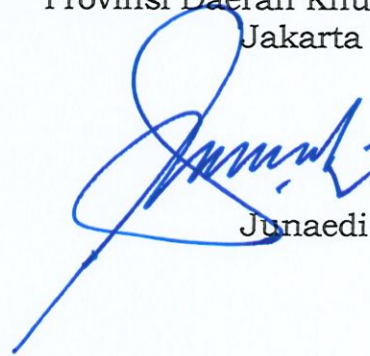 Provinsi Daerah Khu
Jakarta
Junaedi